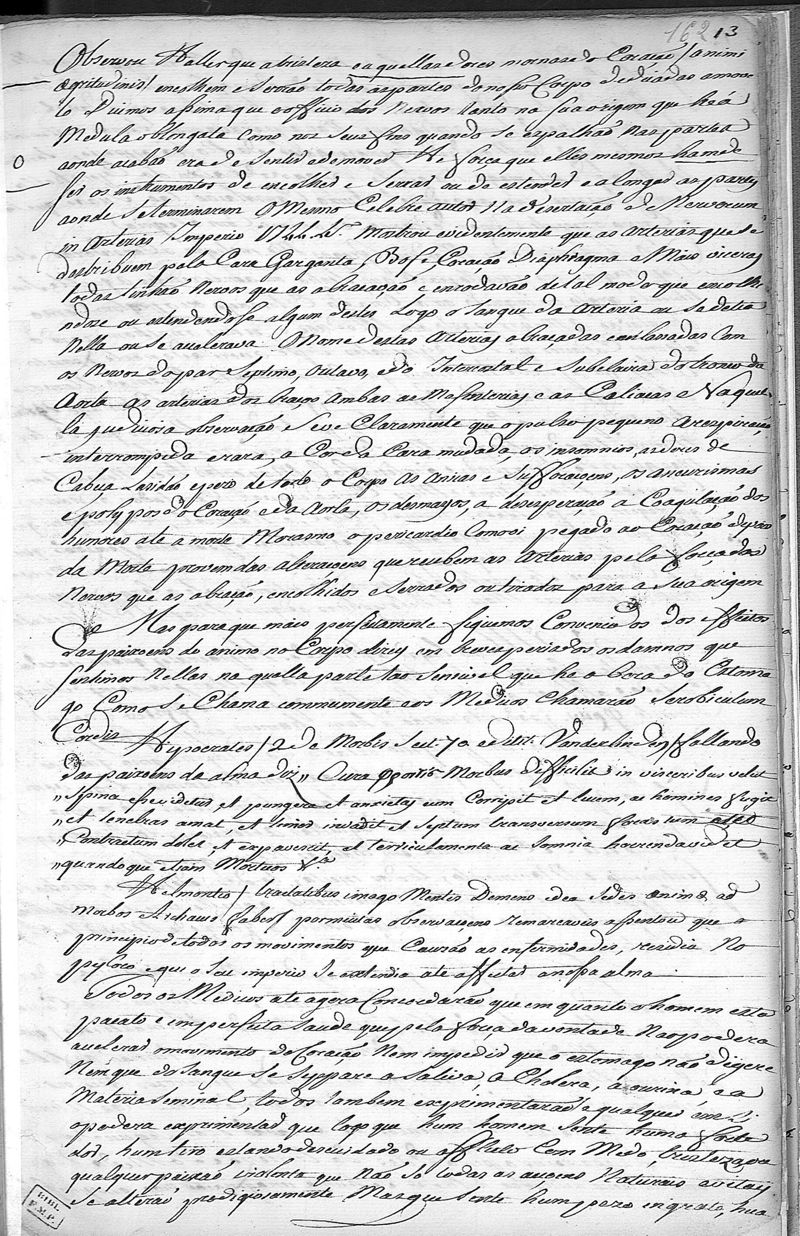 162 13
Observou Haller que a tristeza e aquellas dores mornas do Coração / animi
ægritudinis / encolhem e serrão todas as partes do nosso Corpo dediuadas
lo Dicimos assima que o officio dos Nervos tanto na sua origem que he a
Medula oblongata como nos seus fins quando se espalhão nas partes
aonde acabão era de sentir e de mover He força que elles mesmos hamde
ser os instrumentos de encolher e serrar ou de estender e alongar as partes
aonde se terminarem O Mesmo Celebre autor Na disertação de Nervorum
in arterias Imperio 1744. 4.º Mostrou evidentemente que as arterias que se
destribuem pela Cara Garganta, Bofe, Coração Diaphragma e Mais visceras
todas tinhão Nervos que as abraçação e enrodavão de tal modo que encolhe
ndose ou estendendose algum destes Logo o sangue da Arteria ou se detia
Nella ou se acelerava. O Nome destas Arterias abraçadas e enlassadas Com
os Nervos do par Septimo, outavo, e do Intercostal e Subclavia do tronco da
Aorta as arterias dos braços Ambas as Mesenterias e as Caliacas e Naquel
la judiciosa observação Se ve Claramente que o pulso pequeno a respiração
interrompida e rara, a Cor da Cara mudada, os insomnios, as dores de
Cabeça Lasidão e pezo de todo o Corpo As ancias e Suffocaçoens, os aneurismas
e polypos do Coração e da Aorta, os desmayos, a desesperação a Coagulação dos
humores ate a morte Morasmo o pericardio Comoos pegado ao Coração depois
da Morte provem das alteraçoens que recebem as Arterias pela força dos
Nervos que as abração, encolhidos e serrados ou tirados para a sua origem
Mas para que mais perfeitamente fiquemos Convencidos dos effeitos
das paixoens do animo no Corpo direy em breve periodos os damnos que
sentimos Nellas na quella parte tão sensivel que he a boca do Estoma
go Como se Chama communmente e os Medicos Chamarão Scrobiculum
Cordis Hypocrates / 2 de Morbis Sect. 70 edit. Vanderlinden / fallando
das paixoens da alma diz " Cura Morbus difficilis in visceribus velut
" spina esse videtur et pungere et anxietas eum Corripit et lucem, ac homines fugit
" et tenebras amat, et timor invadit et septum transversum foras tum
" Contractum dolet et expavescit, et terriculamenta ac somnia horrenda videt et
" quandoque etiam Mortuos &.ª
Helmontio / tractatibus imago Mentis Demens idea Sedes animæ ad
morbos Archæus faber / por muitas observaçoens remarcaveis assentou que o
principio de todos os movimentos que Causão as enfermidades, rezidia No
pyloro e que o seu imperio Se extendia ate affectar anossa alma.
Todos os Medicos ate agora Concordarão que em quanto o homem esta
pacato e em perfeita saude que pela força da vontade Não podera
acelerar o movimento do Coração Nem impedir que o estomago não digere
Nem que do Sangue Se seppare a Saliva, a Cholera, a ourina, e a
Materia Seminal, todos tambem exprimentarão e qualquer em Si
o podera exprimentar que logo que hum homem Sente huma
dor, hum tiro estando descuidado ou afflicto Com Medo, tristeza, ou
qualquer paixão violenta que Não so todas as acçoens Naturais e vitais
Se alterão prodigiosamente Mas que Sente hum pezo ingrato, hua
BIBL.
F.M.P.